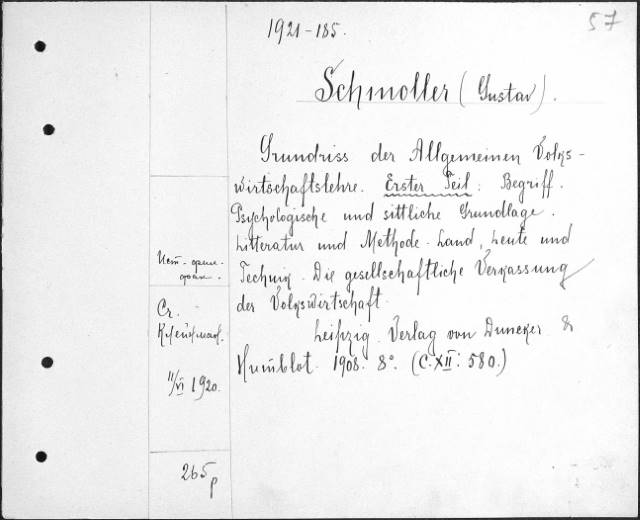 1921-185.
57
Schmoller (Gustav).
Grundriss der Allgemeinen Volks-
wirtschaftslehre. Erster Teil: Begriff.
Psychologische und sittliche Grundlage.
Litteratur und Methode. Land, Leute und
Technik. Die gesellschaftliche Verfassung
der Volkswirtschaft.
Leipzig. Verlag von Duncker &
Humblot. 1908. 8°. (C. XII: 580.)
Ист.-фил.
фак.
Ст.
11/VI 1920.
265 р